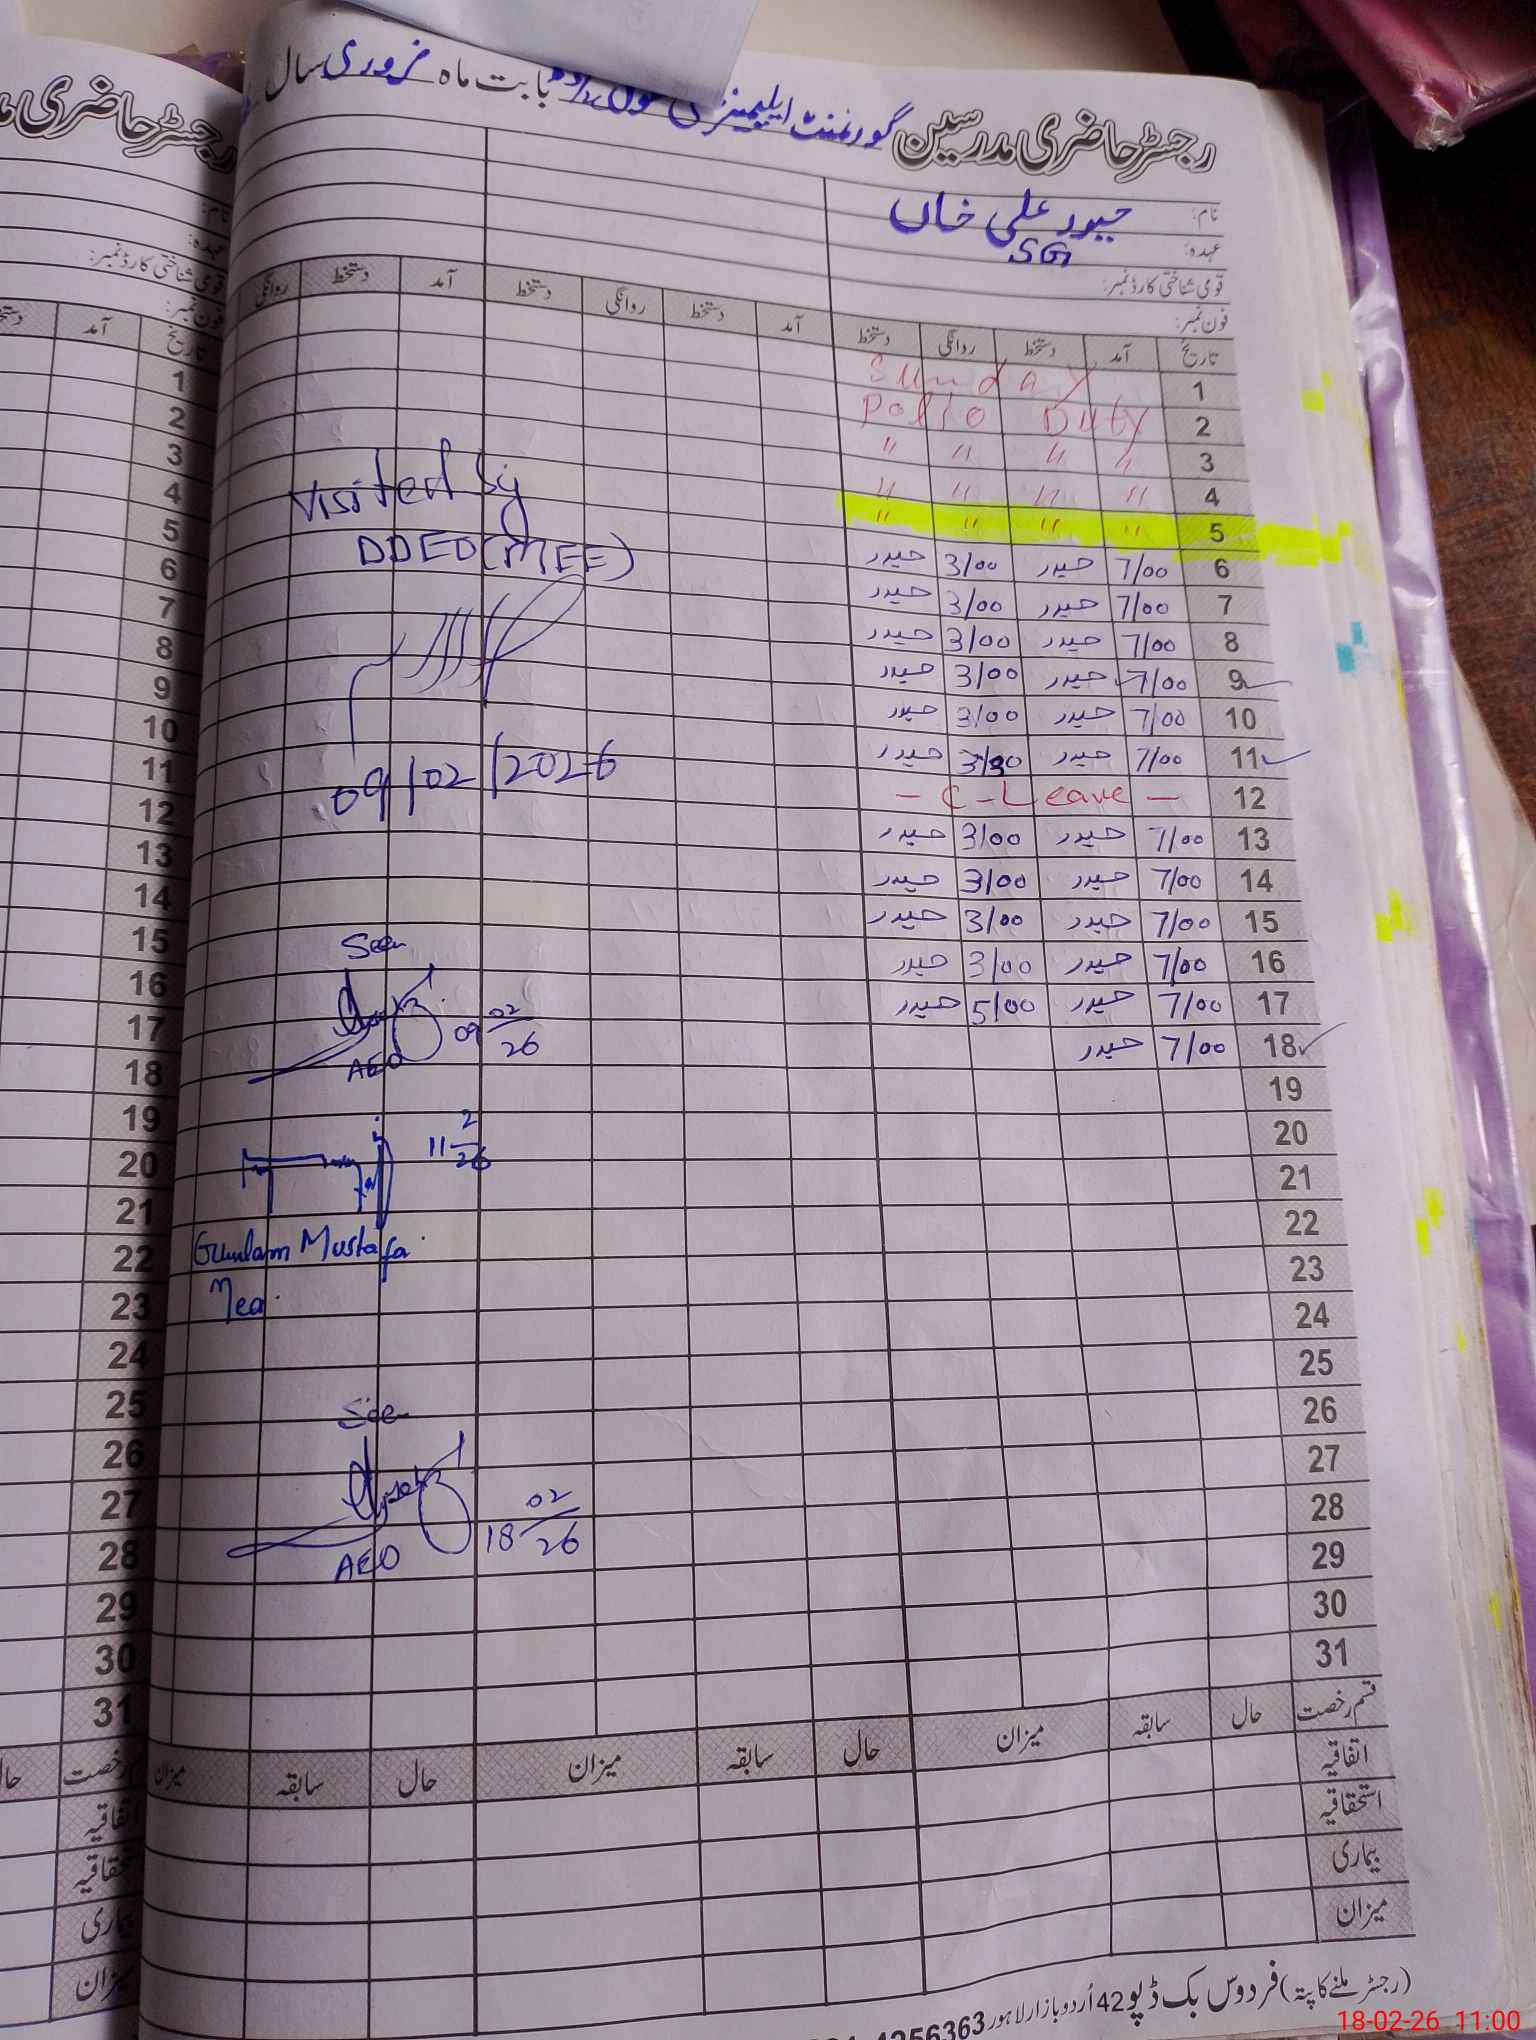 رجسٹر حاضری مدرسین گورنمنٹ ایلیمنٹری بابت ماہ فروری سال
نام: حیدر علی خان
عہدہ: SG
قومی شناختی کارڈ نمبر:
فون نمبر:
تاریخ آمد دستخط روانگی دستخط آمد دستخط روانگی دستخط آمد دستخط روانگی
1 Sunday
2 Polio Duty
3 " " " "
4 " " " "
5 " " " "
6 7/00 حیدر 3/00 حیدر
7 7/00 حیدر 3/00 حیدر
8 7/00 حیدر 3/00 حیدر
9 7/00 حیدر 3/00 حیدر
10 7/00 حیدر 3/00 حیدر
11 7/00 حیدر حیدر
12 - C - Leave -
13 7/00 حیدر 3/00 حیدر
14 7/00 حیدر 3/00 حیدر
15 7/00 حیدر 3/00 حیدر
16 7/00 حیدر 3/00 حیدر
17 7/00 حیدر 5/00 حیدر
18 7/00 حیدر
19
20
21
22
23
24
25
26
27
28
29
30
31
قسم رخصت حال سابقہ میزان حال سابقہ میزان حال سابقہ میزان
اتفاقیہ
استحقاقیہ
بیماری
میزان
(رجسٹر ملنے کا پتہ) فردوس بک ڈپو 42 اُردو بازار لاہور 4256363
Visited by
DDEO (MEE)
09/02/2026
Seen
AEO 09 02/26
11 2/26
Ghulam Mustafa
Mea.
Seen
AEO 18 02/26
رجسٹر حاضری
نام:
عہدہ:
قومی شناختی کارڈ نمبر:
فون نمبر:
تاریخ آمد
1
2
3
4
5
6
7
8
9
10
11
12
13
14
15
16
17
18
19
20
21
22
23
24
25
26
27
28
29
30
31
رخصت حال
اتفاقیہ
بیماری
میزان
18-02-26 11:00